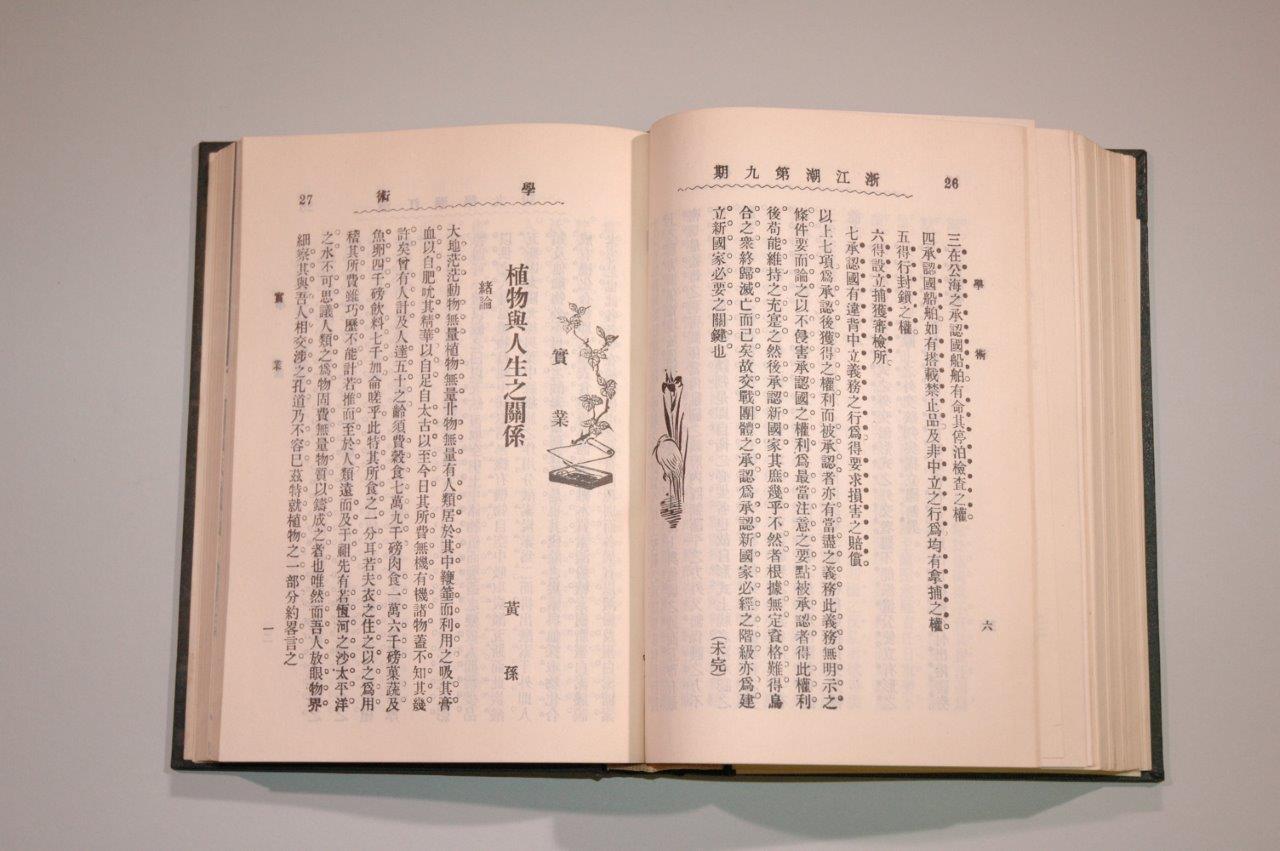 浙江潮第九期
26
學術
六
三在公海之承認國船舶有命其停泊檢查之權
四承認國船舶如有搭載禁止品及非中立之行爲均有拿捕之權
五得行封鎖之權
六得設立捕獲審檢所
七承認國有違背中立義務之行爲得要求損害之賠償
以上七項爲承認後獲得之權利而被承認者亦有當盡之義務此義務無明示之
條件要而論之以不侵害承認國之權利爲最當注意之要點被承認者得此權利
後苟能維持之充寔之然後承認新國家其庶幾乎不然者根據無定資格難得烏
合之衆終歸滅亡而已矣故交戰團體之承認爲承認新國家必經之階級亦爲建
立新國家必要之關鍵也
(未完)
學術
27
實業
植物與人生之關係
黃孫
緒論
大地茫茫動物無量植物無量卝物無量有人類居於其中鞭箠而利用之吸其膏
血以自肥吮其精華以自足自太古以至今日其所費無機有機諸物蓋不知其幾
許矣曾有人計及人達五十之齡須費穀食七萬九千磅肉食一萬六千磅菓蔬及
魚卵四千磅飲料七千加侖嗟乎此特其所食之一分耳若夫衣之住之以之爲用
稽其所費雖巧歷不能計若推而至於人類遠而及于祖先有若恆河之沙太平洋
之水不可思議人類之爲物固費無量物質以鑄成之者也唯然而吾人放眼物界
細察其與吾人相交涉之孔道乃不容已茲特就植物之一部分約畧言之
實業
一